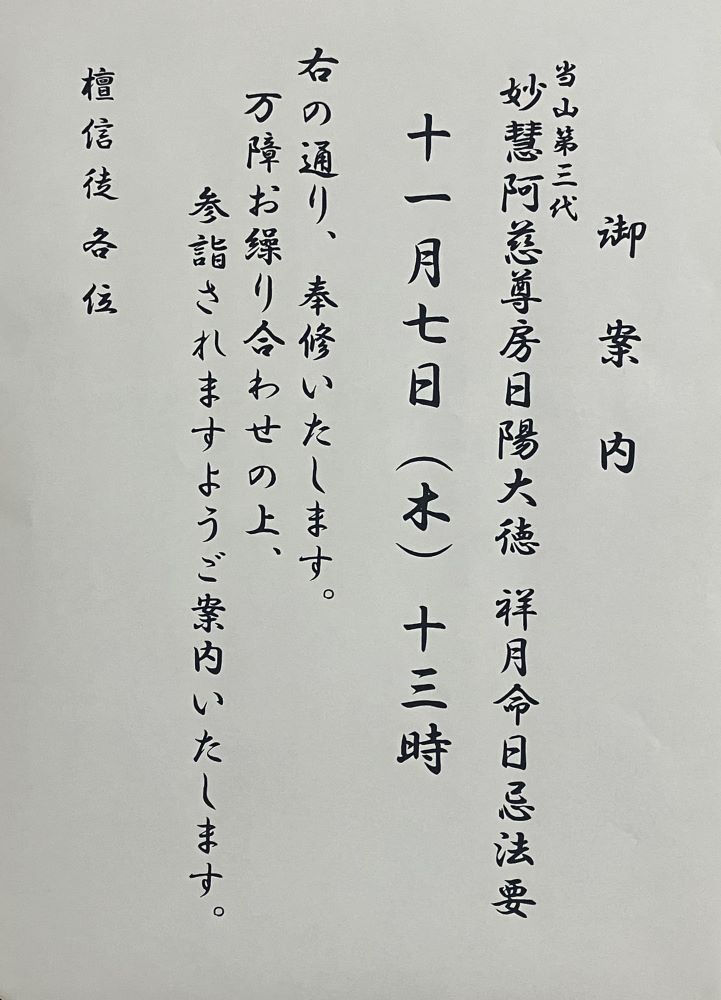 御案内
当山第三代
妙慧阿慈尊房日陽大徳 祥月命日忌法要
十一月七日（木） 十三時
右の通り、奉修いたします。
万障お繰り合わせの上、
参詣されますようご案内いたします。
檀信徒各位